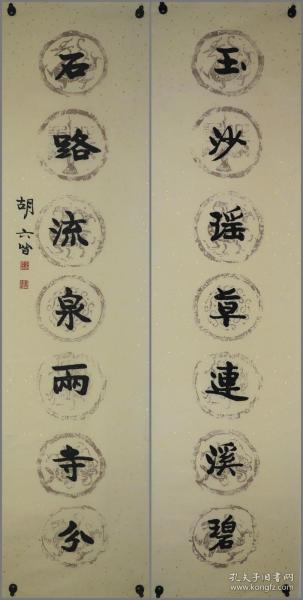 玉沙瑶草連溪碧
石路流泉兩寺分
胡六皆
孔夫子旧书网
www.kongfz.com